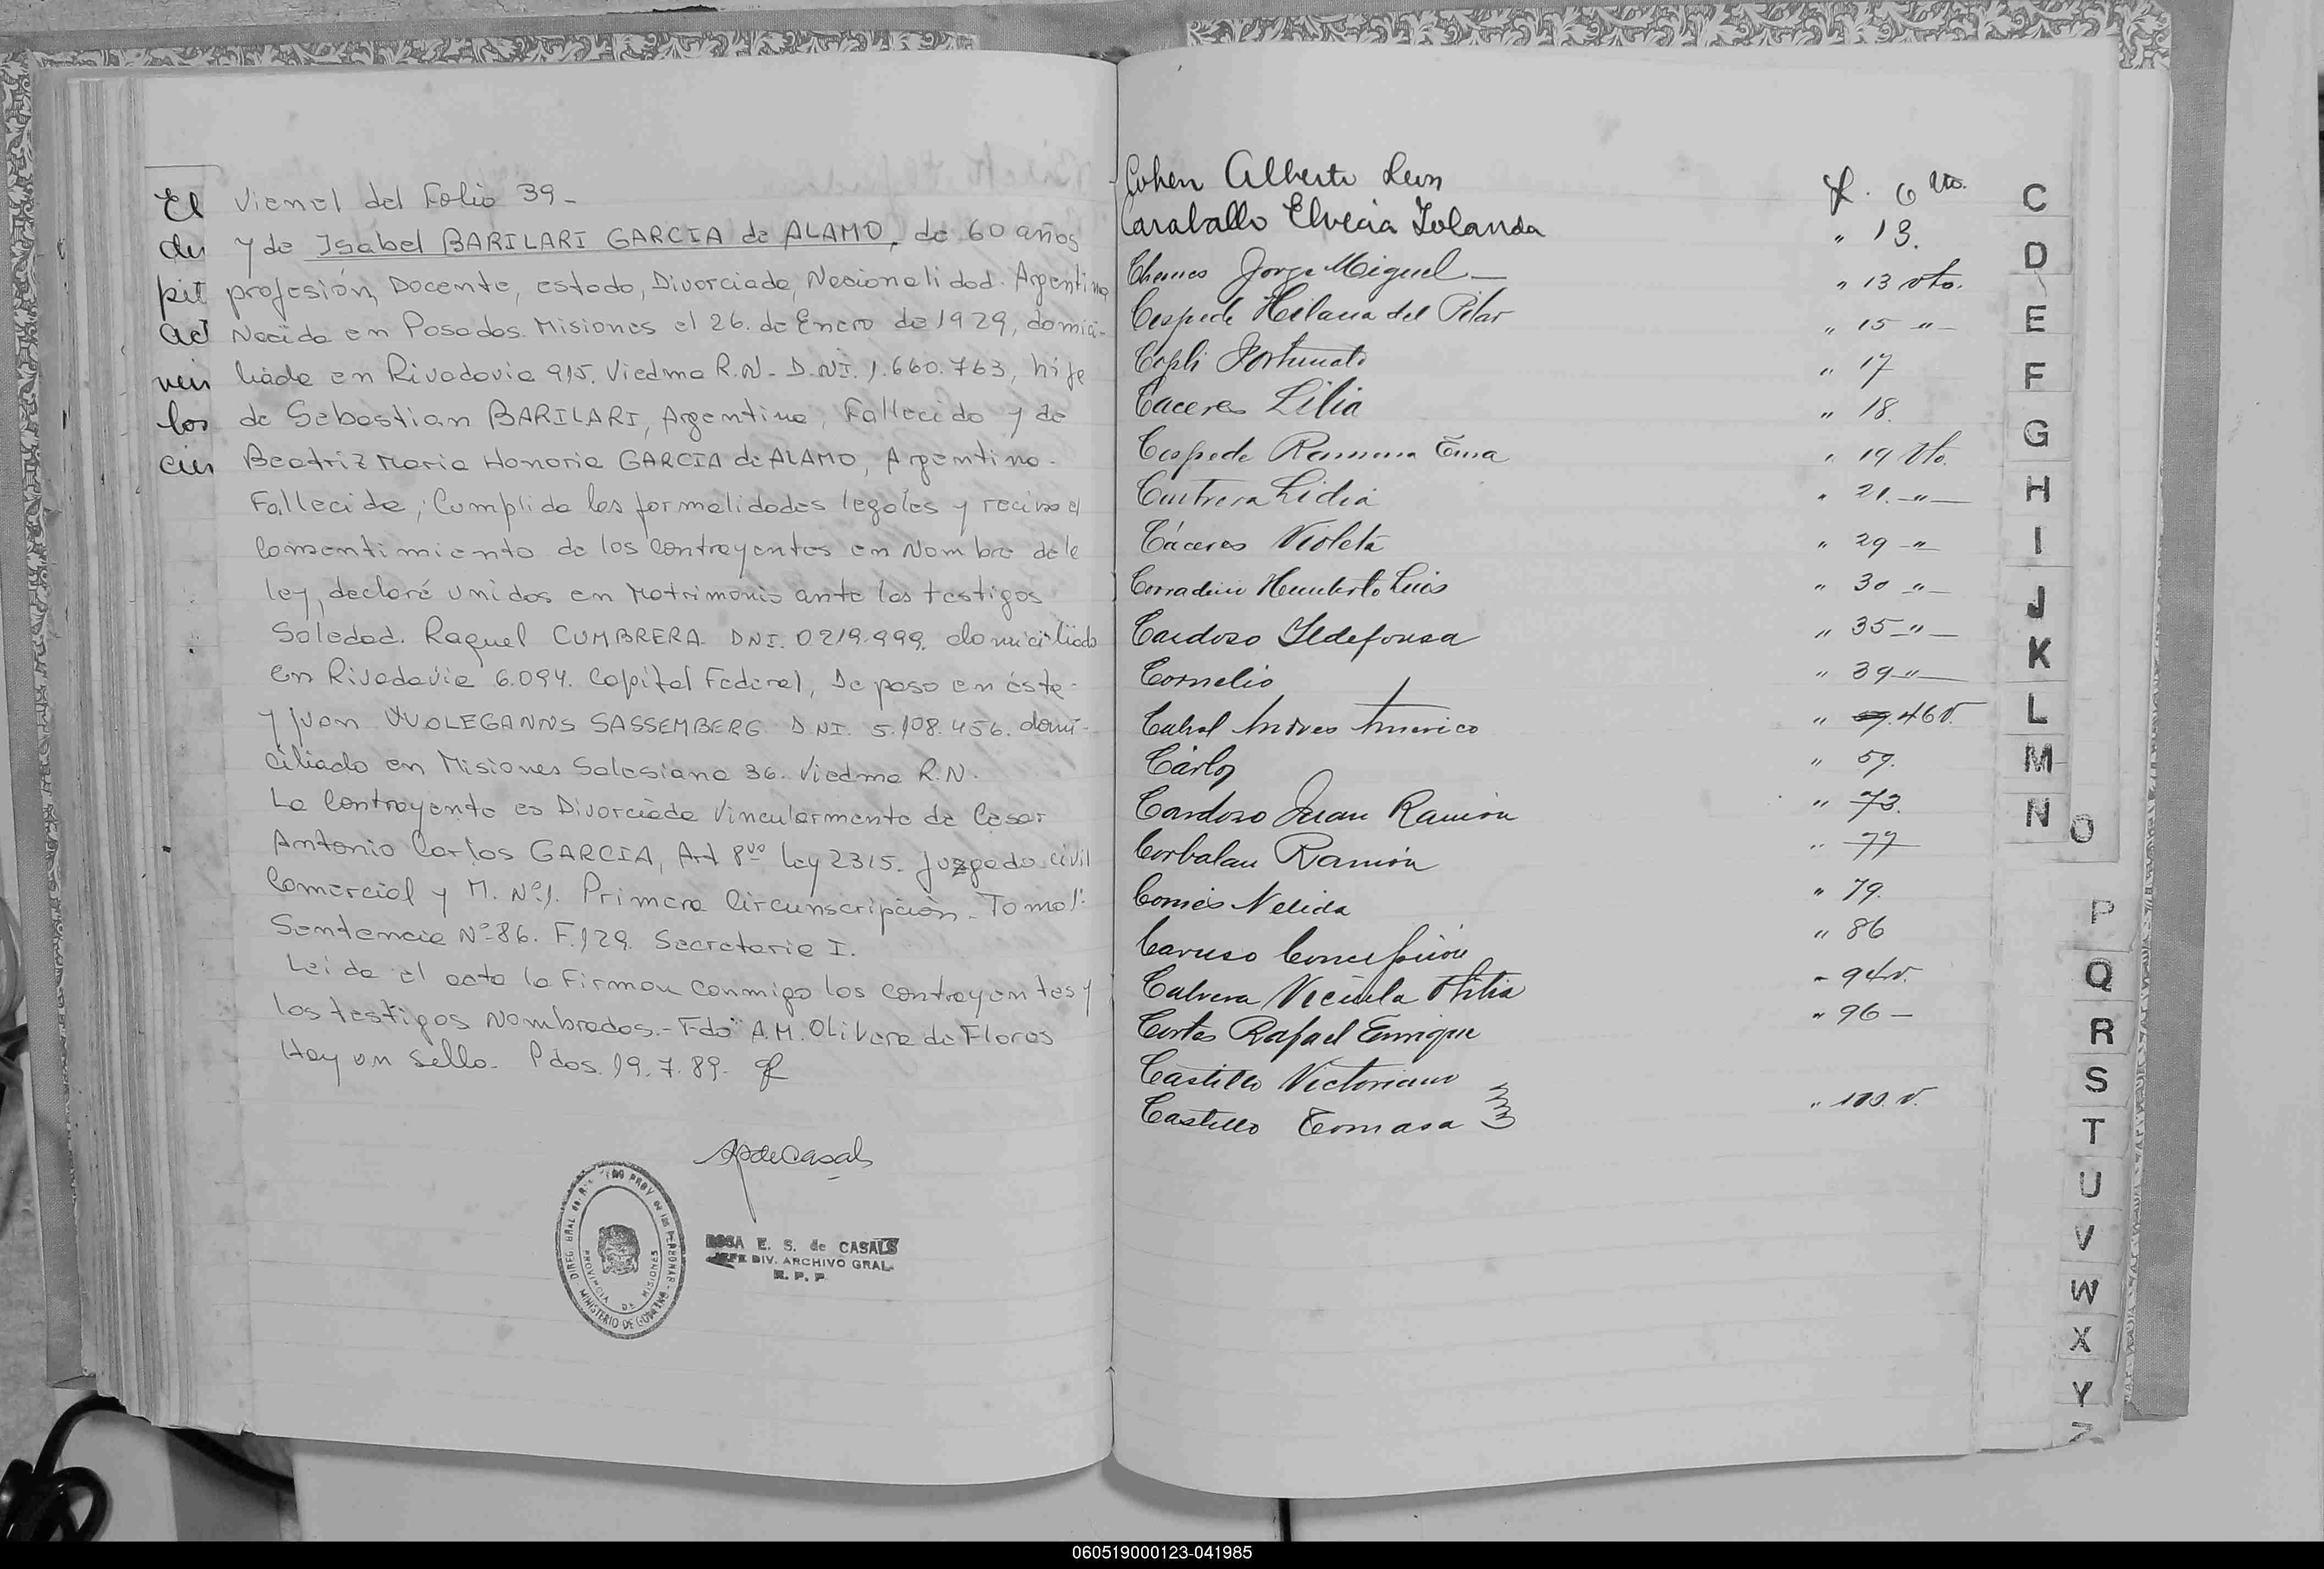 El
du
pit
act
ven
los
cien
Viene del Folio 39-
y de Isabel BARILARI GARCIA de ALAMO, de 60 años
profesión, Docente, estado, Divorciada, Nacionalidad. Argentina
Nacida en Posadas. Misiones el 26. de Enero de 1929, domici-
liada en Rivadavia 915. Viedma R.N- D.NI. 1.660.763, hija
de Sebastian BARILARI, Argentino, Fallecido y de
Beatriz Maria Honoria GARCIA de ALAMO, Argentina-
Fallecida; Cumplida las formalidades legales y recivo el
Consentimiento de los Contrayentes en Nombre de la
ley, declaré unidos en Matrimonio ante los testigos
Soledad. Raquel CUMBRERA. DNI. 0219.999. domiciliado
en Rivadavia 6.094. Capital Federal, De paso en ésta-
y Juan WOLEGANNS SASSEMBERG D.NI. 5.108.456. domi-
ciliado en Misiones Salesiana 36. Viedma R.N.
La Contrayente es Divorciada Vincularmente de Cesar
Antonio Carlos GARCIA, Art 8vo ley 2315. Juzgado civil
Comercial y M. Nº1. Primera Circunscripción- Tomo 1º
Sentencia Nº86. F.129. Secretaria I.
Leida el acta la Firman conmigo los contrayentes y
los testigos Nombrados.- Fdo A.M. Olivera de Flores
Hay un sello- Pdos. 19.7.89.
ROSA E. S. de CASALS
JEFE DIV. ARCHIVO GRAL.
R. P. P.
PROVINCIA DE MISIONES
Cohen Alberto Leon f. 6 vto.
Caraballo Elvecia Iolanda " 13.
Chemes Jorge Miguel- " 13 vto.
Cespede Hilaria del Pilar " 15 "-
Cepli Fortunato " 17
Caceres Lilia " 18.
Cespede Ramona Ema " 19 Vto.
Cuitrera Lidia " 21.-"-
Cáceres Violeta " 29 -"
Corradini Humberto Luis " 30 "-
Cardoso Ildefonsa " 35-"-
Cornelio " 39-"-
Cabral Andres Americo " 46 v.
Cárlos " 59.
Cardozo Juan Ramón " 73.
Corbalan Ramón " 77
Comes Nelida " 79.
Caruso Concepción " 86
Cabrera Otilia " 94v.
Cortes Rafael Enrique " 96-
Castillo Victoriano
Castillo Tomasa " 100. v.
C
D
E
F
G
H
I
J
K
L
M
N
O
P
Q
R
S
T
U
V
W
X
Y
Z
060519000123-041985